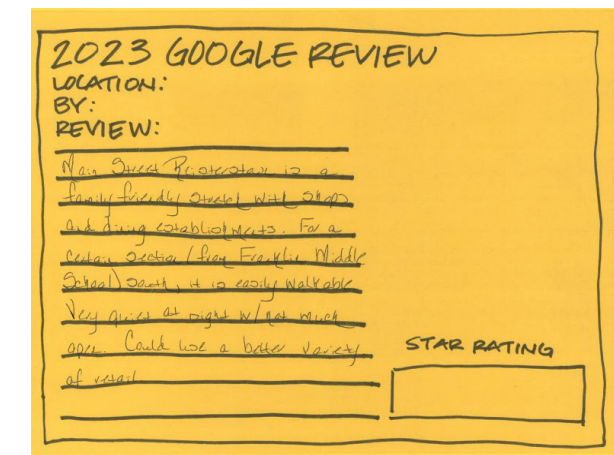 2023 GOOGLE REVIEW
LOCATION:
BY:
REVIEW:
Main Street Reisterstown is a
family friendly stretch with shops
and dining establishments. For a
certain section (from Franklin Middle
School) south, it is easily walkable
Very quiet at night w/ not much
open. Could use a better variety
of retail
STAR RATING